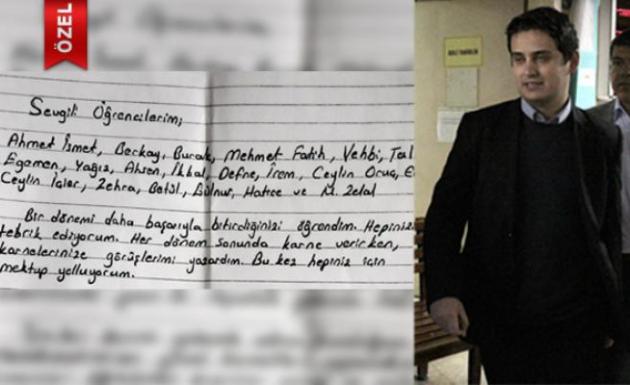 ÖZEL
Sevgili Öğrencilerim;
Ahmet İsmet, Berkay, Burak, Mehmet Fatih, Vehbi,
Egemen, Yağız, Ahsen, İkbal, Defne, İrem, Ceylin Ocua, E
Ceylin İçler, Zehra, Betül, Gülnur, Hatice ve M. Zelal
Bir dönemi daha başarıyla bitirdiğinizi öğrendim. Hepinizi
tebrik ediyorum. Her dönem sonunda karne verirken,
karnelerinize görüşlerimi yazardım. Bu kez hepiniz için
mektup yolluyorum.